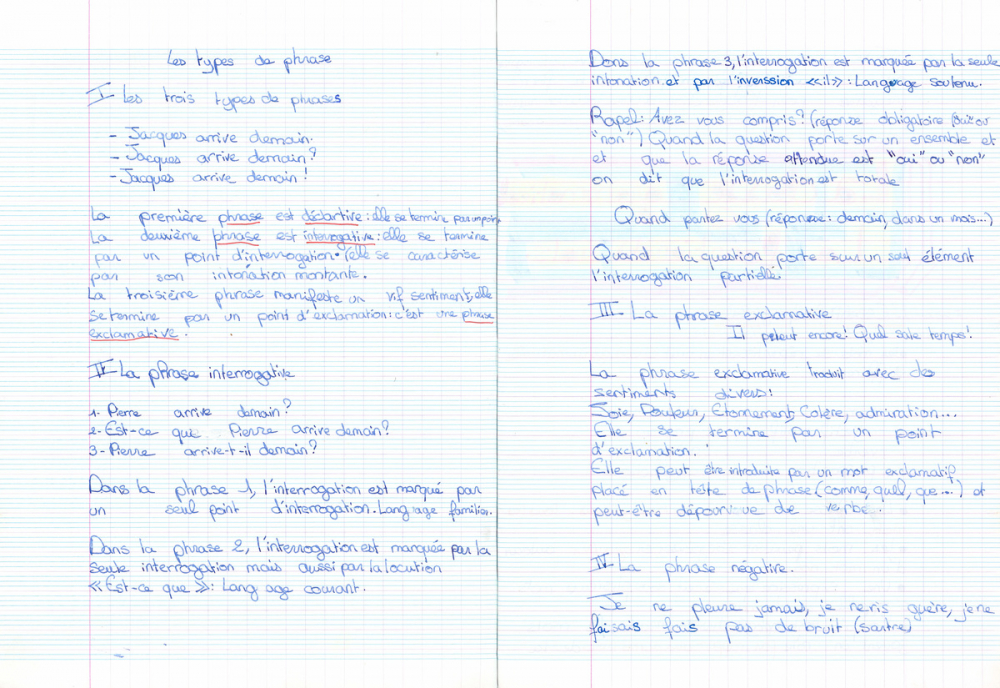 Les types de phrase
I Les trois types de phrases
- Jacques arrive demain.
- Jacques arrive demain?
- Jacques arrive demain!
La première phrase est déclartive : elle se termine par un point
La deuxième phrase est interrogative : elle se termine
par un point d'interrogation. (elle se caractérise
par son intonation montante.
La troisième phrase manifeste un vif sentiment; elle
se termine par un point d'exclamation : c'est une phrase
exclamative.
II La phrase interrogative
1- Pierre arrive demain?
2- Est-ce que Pierre arrive demain?
3- Pierre arrive-t-il demain?
Dans la phrase 1, l'interrogation est marqué par
un seul point d'interrogation. Language familier.
Dans la phrase 2, l'interrogation est marquée par la
seule interrogation mais aussi par la locution
«Est-ce que» : Language courant.
Dans la phrase 3, l'interrogation est marquée par la seule
intonation et par l'inverssion «il» : Language soutenu.
Rapel : Avez vous compris? (réponse obligatoire "oui" ou
"non") Quand la question porte sur un ensemble et
et que la réponse attendue est "oui" ou "non"
on dit que l'interrogation est totale
Quand partez vous (réponse : demain, dans un mois...)
Quand la question porte sur un seul élément
l'interrogation partielle
III La phrase exclamative
Il pleut encore! Quel sale temps!
La phrase exclamative traduit avec des
sentiments divers :
Joie, Douleur, Etonnement, Colère, admiration...
Elle se termine par un point
d'exclamation.
Elle peut être introduite par un mot exclamatif
placé en tête de phrase (comme, quel, que...) et
peut-être dépourvue de verbe.
IV La phrase négative.
Je ne pleure jamais, je ne ris guère, je ne
faisais fais pas de bruit (Sartre)